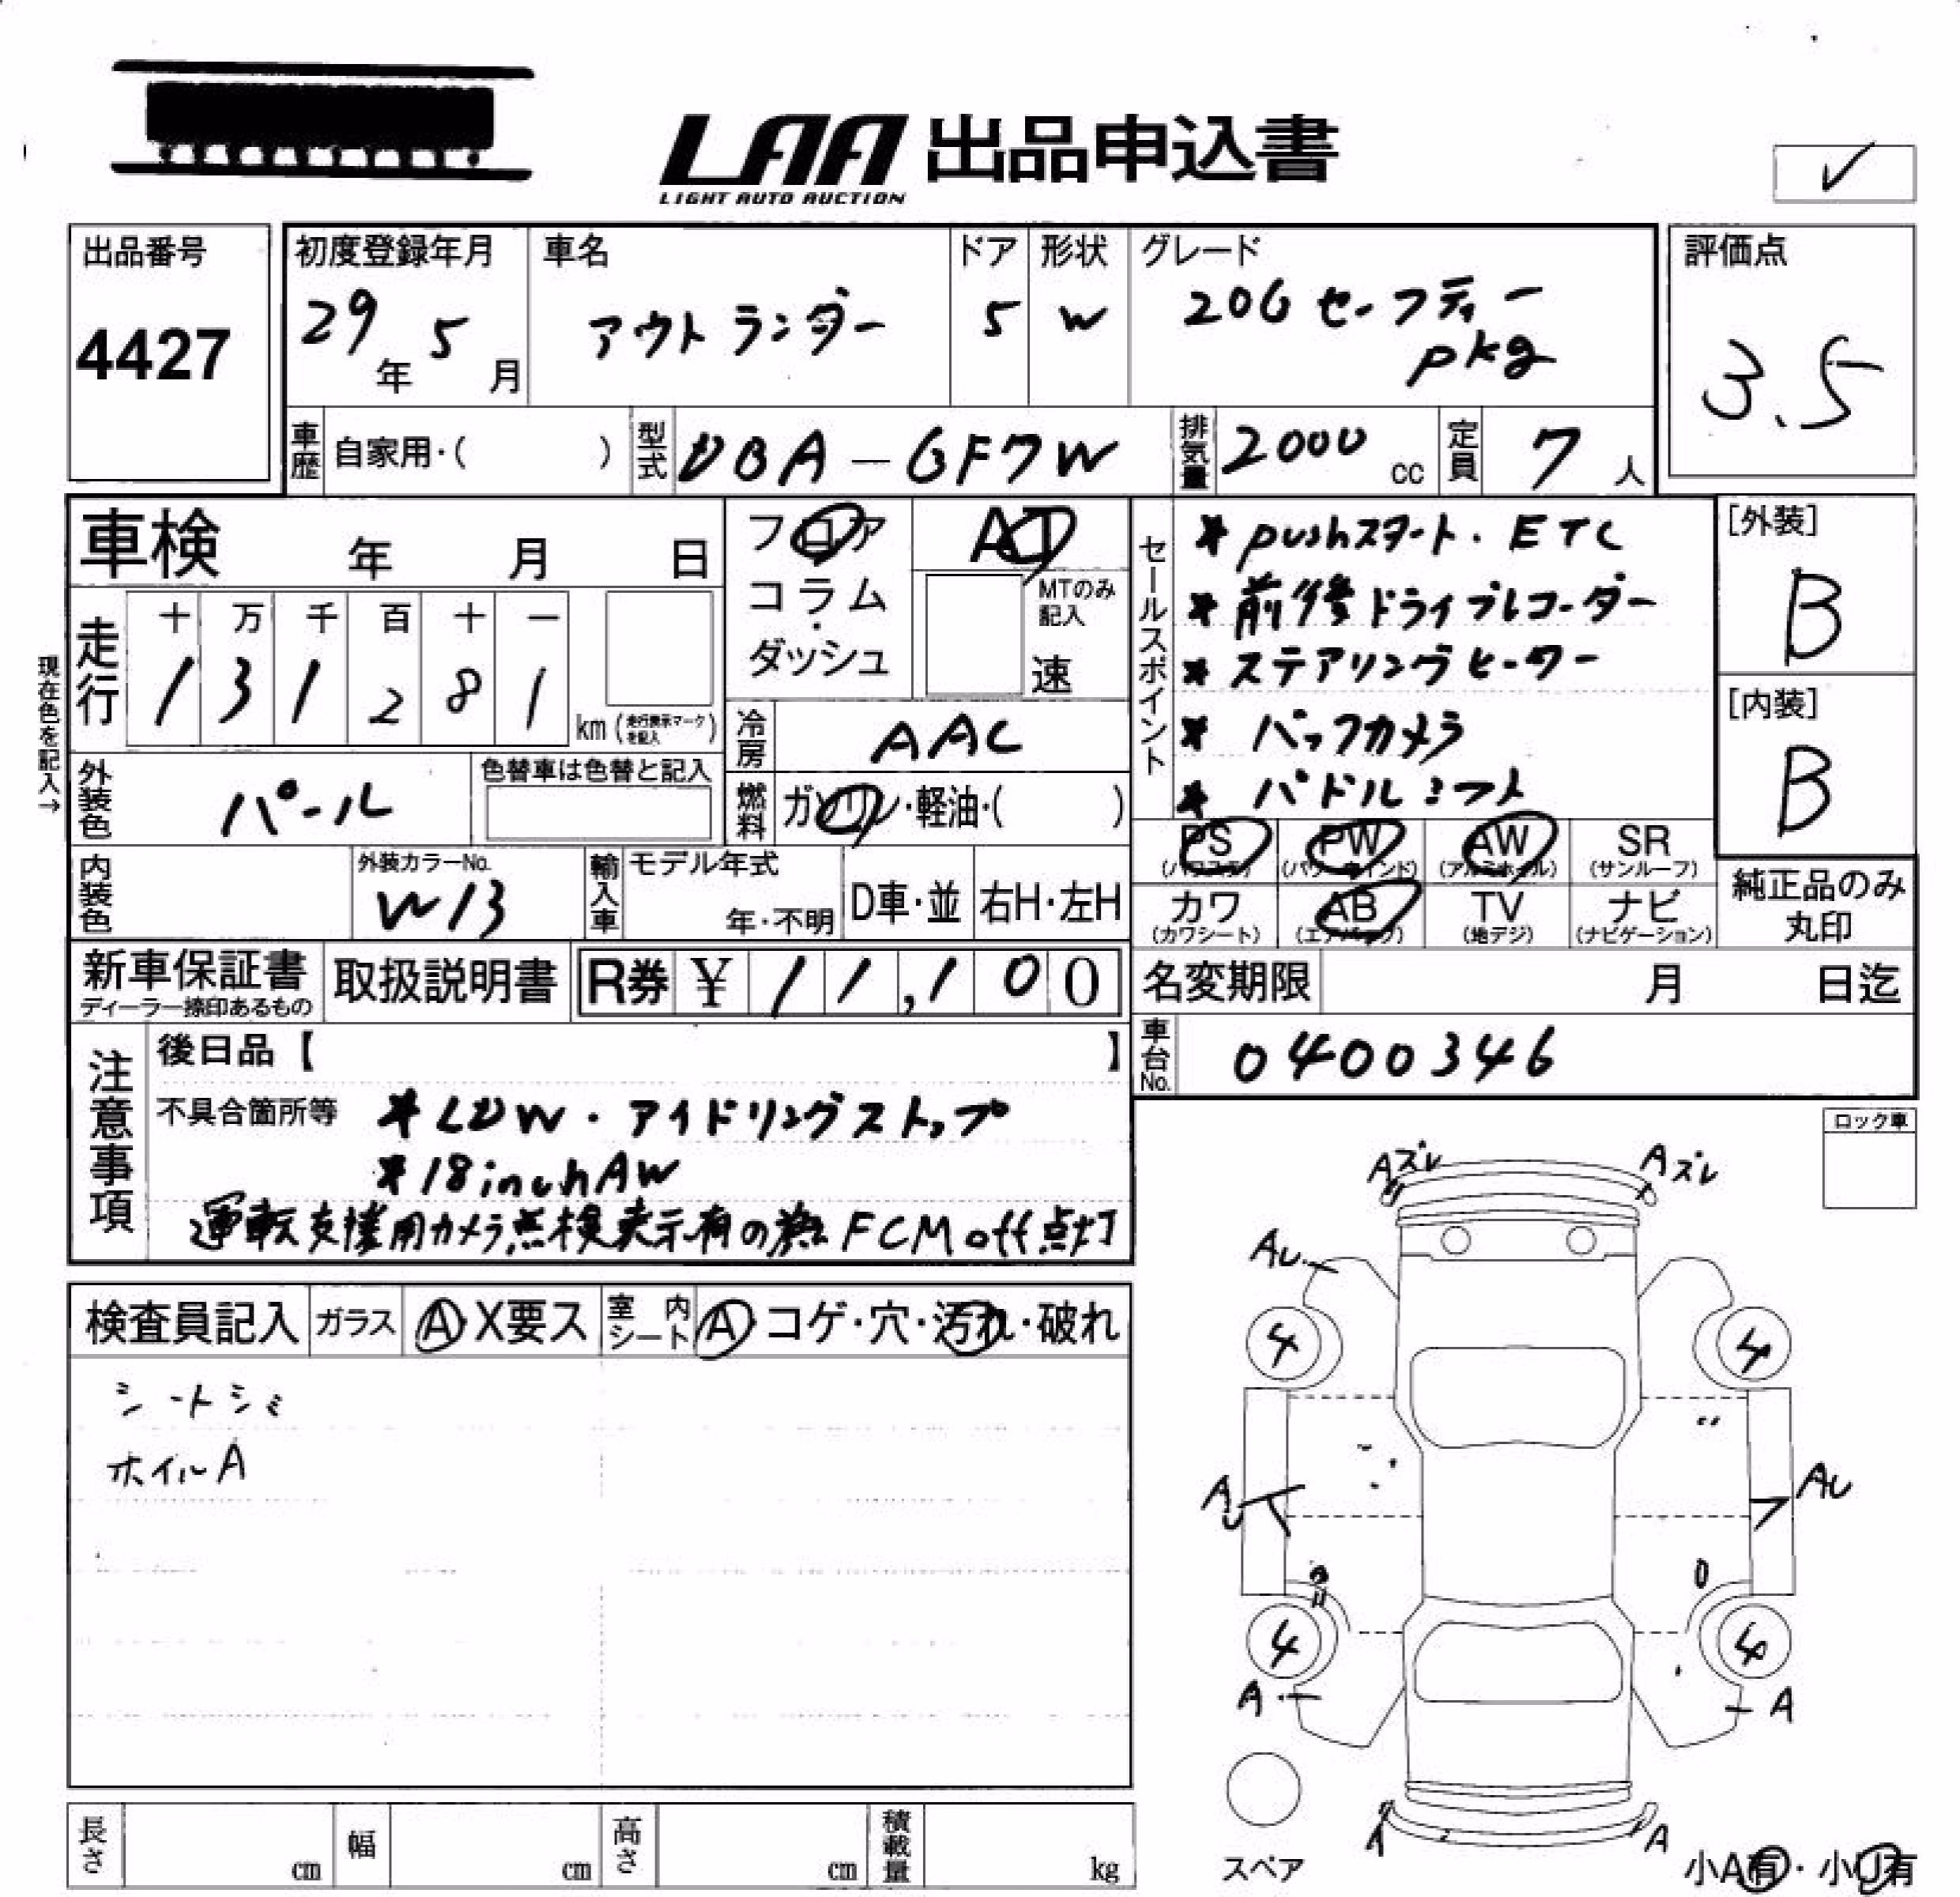 LAA 出品申込書
LIGHT AUTO AUCTION
出品番号
4427
初度登録年月
29年 5月
車名
アウトランダー
ドア
5
形状
W
グレード
20G セーフティー
pkg
評価点
3.5
車歴 自家用・( )
型式 DBA-GF7W
排気量 2000 cc
定員 7 人
車検 年 月 日
フロア
コラム
ダッシュ
AT
MTのみ
記入
速
セールスポイント
* pushスタート・ETC
* 前後ドライブレコーダー
* ステアリングヒーター
* バックカメラ
* パドルシフト
[外装]
B
[内装]
B
現在色を記入→
走行
十 万 千 百 十 一
1 3 1 2 8 1
km (走行表示マークを記入)
冷房 AAC
外装色 パール
色替車は色替と記入
燃料 ガソリン・軽油・( )
PS PW AW SR
(パワステ) (パワーウィンド) (アルミホイル) (サンルーフ)
カワ AB TV ナビ
(カワシート) (エアバック) (地デジ) (ナビゲーション)
純正品のみ
丸印
内装色
外装カラーNo.
W13
輸入車
モデル年式
年・不明
D車・並
右H・左H
新車保証書
ディーラー捺印あるもの
取扱説明書
R券 ¥ 11,100
名変期限 月 日迄
車台No. 0400346
注意事項
後日品【 】
不具合箇所等 *LDW・アイドリングストップ
*18inchAW
運転支援用カメラ点検表示有の為FCMoff点灯
ロック車
検査員記入
ガラス A X要ス
室内シート A コゲ・穴・汚れ・破れ
シートシミ
ホイルA
Aズレ Aズレ
AU
4 4
AU AU
4 4
A A
A A
スペア
小A有・小U有
長さ cm
幅 cm
高さ cm
積載量 kg